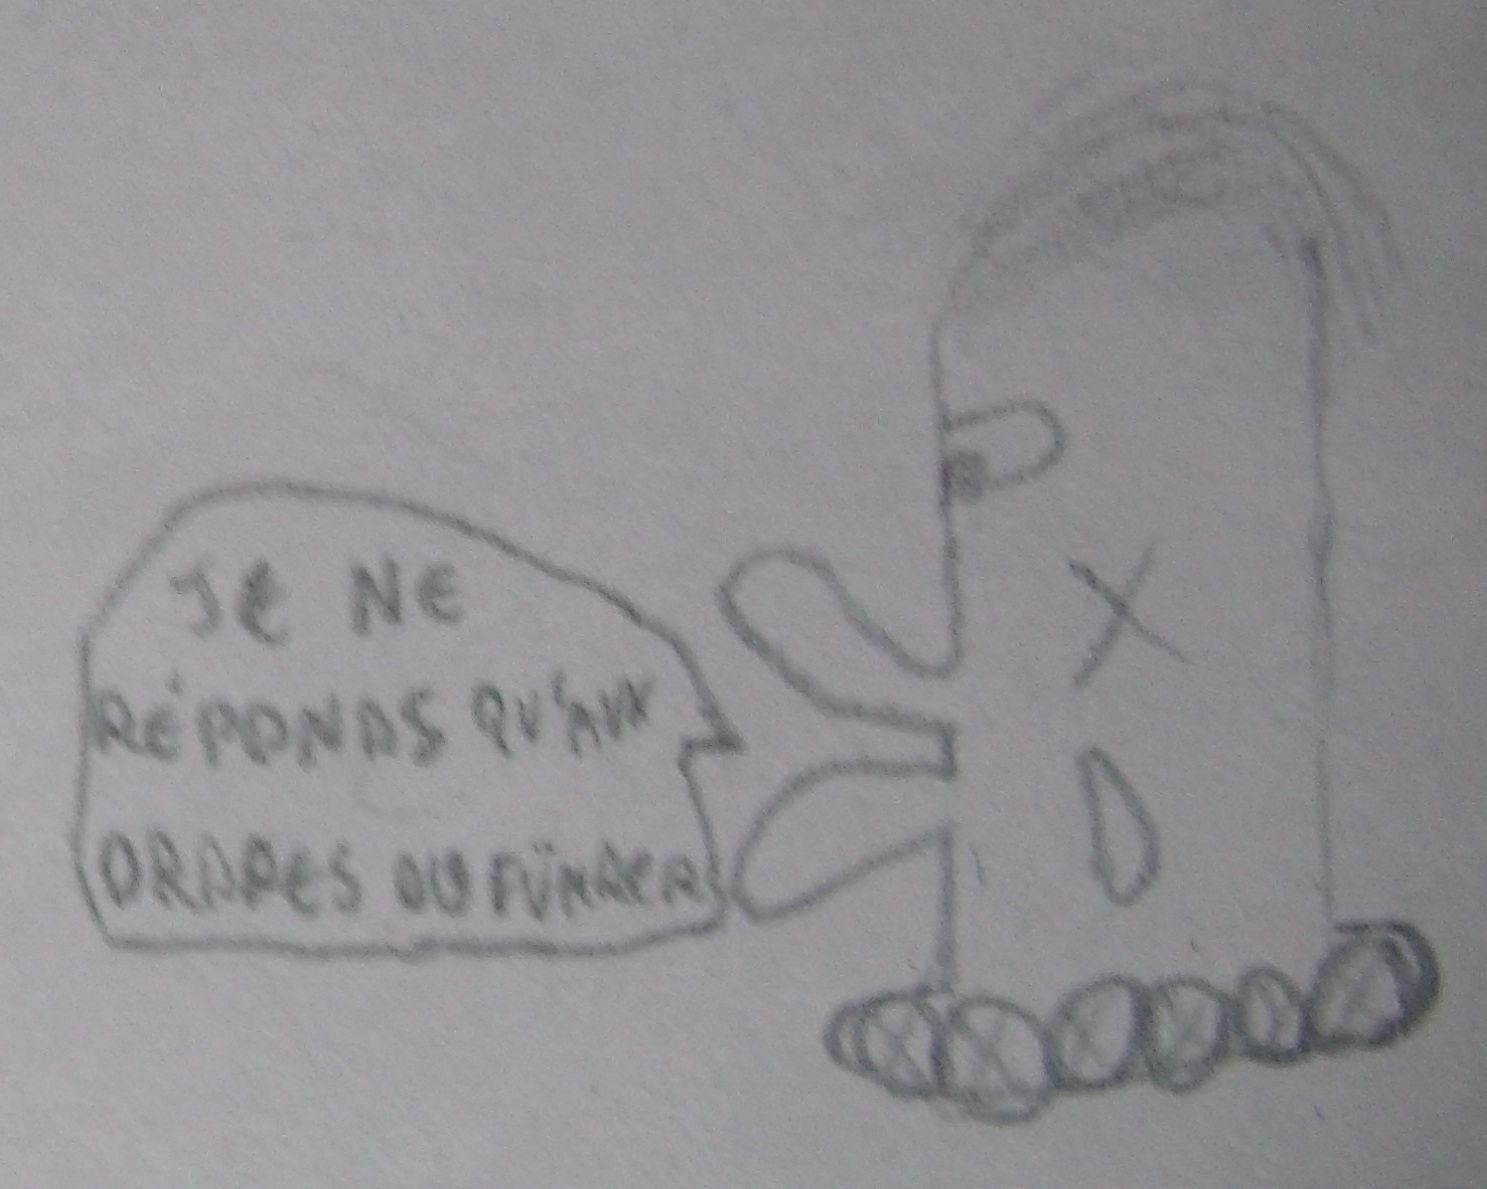 JE NE
RÉPONDS QU'AUX
ORDRES DU FÜHRER